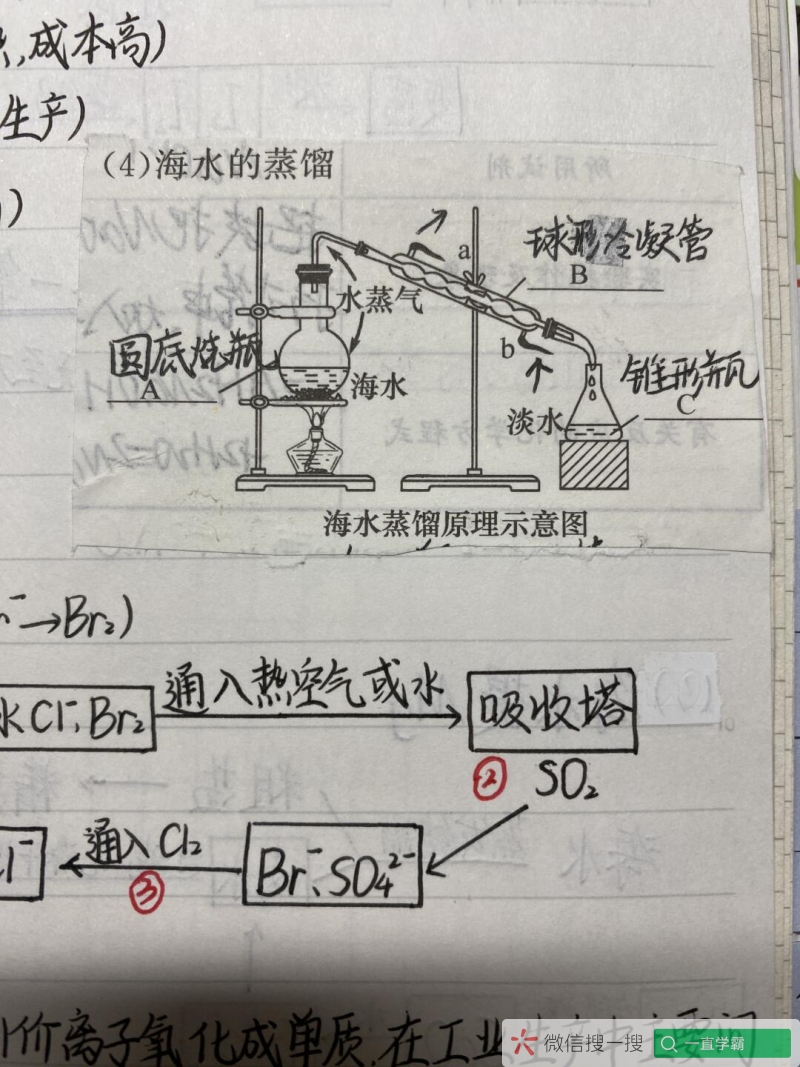 成本高)
生产)
(4)海水的蒸馏
a
球形冷凝管
B
水蒸气
圆底烧瓶
A
海水
b
锥形瓶
C
淡水
海水蒸馏原理示意图
→Br₂)
水Cl⁻、Br₂
通入热空气或水
吸收塔
② SO₂
通入Cl₂
③
Br⁻、SO₄²⁻
价离子氧化成单质.在工业生产中主要问
微信搜一搜
一直学霸